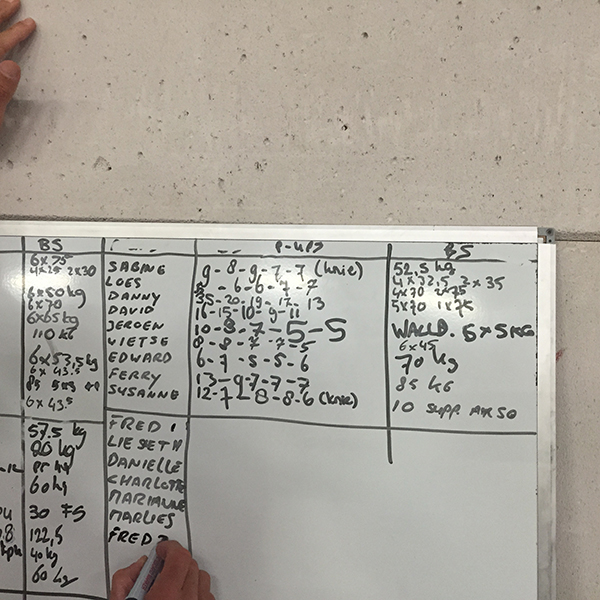 BS P-UPS BS
6x75
4x25 2x30 SABINE 9-8-9-7-7 (knie) 52,5 kg
LOES -6-6-7-7 4x32,5 2x35
6x50kg DANNY 35-20-19-17-13 4x70 2x75
6x70 DAVID 16-15-10-9-11 5x70 1x75
6x65kg JEROEN 10-8-7-5-5 WALLB. 6x5KG
110 KG WIETSE 8-8-7-7-5 6x45
6x53,5kg EDWARD 6-7-5-5-6 70 kg
6x43.5 FERRY 13-9-7-7-7 85 KG
85 5kg SUSANNE 12-7-8-8-6 (knie) 10 SUPP.
6x43.5
FRED 1
57.5 kg LIESETH
80 kg DANIELLE
CHARLOTTE
60kg MARIANNE
30 FS MARLIES
122,5 FRED 2
40kg
60 kg